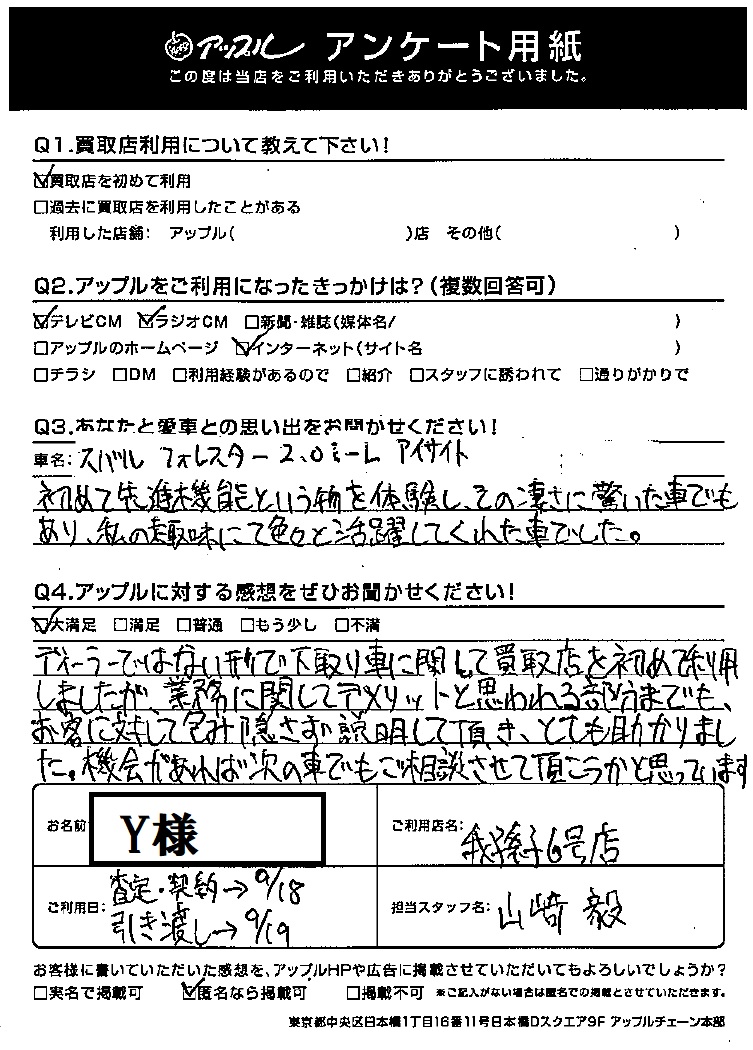 アップル アンケート用紙
この度は当店をご利用いただきありがとうございました。
Q1.買取店利用について教えて下さい！
☑買取店を初めて利用
□過去に買取店を利用したことがある
利用した店舗： アップル( )店 その他( )
Q2.アップルをご利用になったきっかけは？(複数回答可)
☑テレビCM ☑ラジオCM □新聞・雑誌(媒体名/ )
□アップルのホームページ ☑インターネット(サイト名 )
□チラシ □DM □利用経験があるので □紹介 □スタッフに誘われて □通りがかりで
Q3.あなたと愛車との思い出をお聞かせください！
車名：スバル フォレスター 2.0i-L アイサイト
初めて先進機能という物を体験し、その凄さに驚いた車でも
あり、私の趣味にて色々と活躍してくれた車でした。
Q4.アップルに対する感想をぜひお聞かせください！
☑大満足 □満足 □普通 □もう少し □不満
ディーラーではない所で下取り車に関して買取店を初めて利用
しましたが、業務に関してデメリットと思われる部分までも、
お客に対して包み隠さず説明して頂き、とても助かりまし
た。機会があれば次の車でもご相談させて頂こうかと思っています
お名前 Y様
ご利用店名： 我孫子6号店
ご利用日： 査定・契約→9/18
引き渡し→9/19
担当スタッフ名： 山崎 毅
お客様に書いていただいた感想を、アップルHPや広告に掲載させていただいてもよろしいでしょうか？
□実名で掲載可 ☑匿名なら掲載可 □掲載不可 ※ご記入がない場合は匿名での掲載とさせていただきます。
東京都中央区日本橋1丁目16番11号日本橋Dスクエア9F アップルチェーン本部